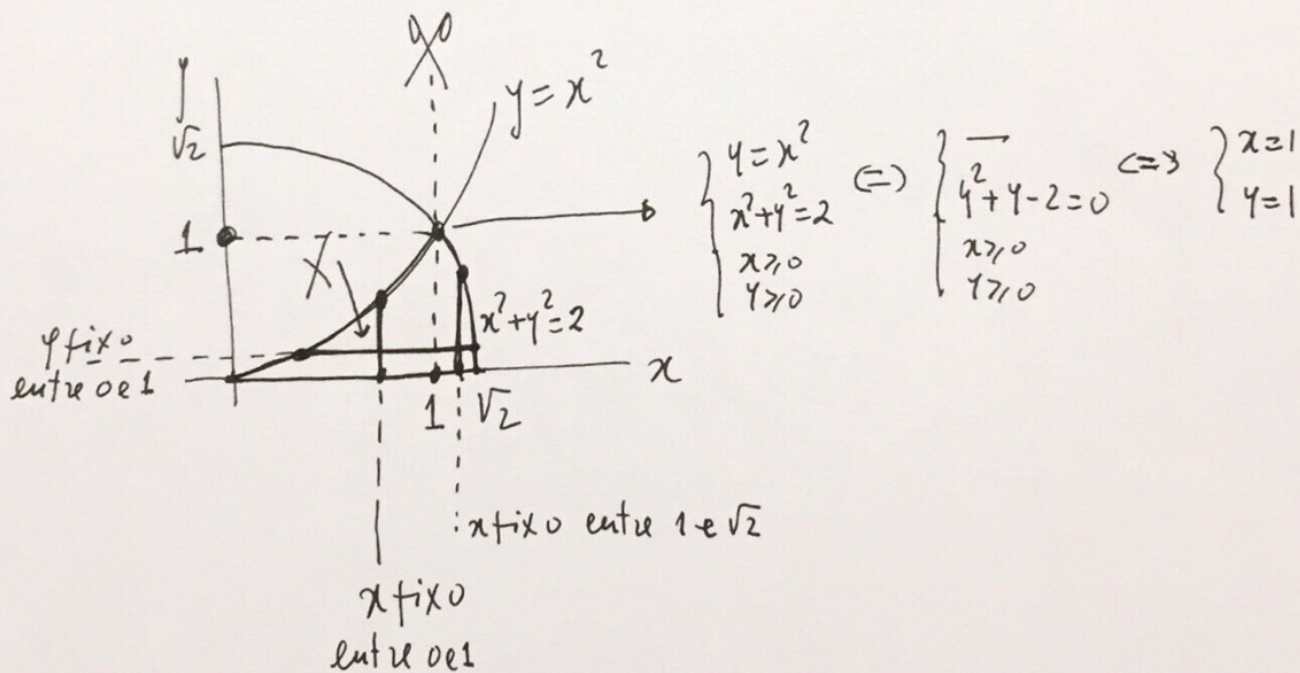 y
y = x²
√2
1
X
x²+y²=2
y fixo
entre 0 e 1
x
1 √2
x fixo entre 1 e √2
x fixo
entre 0 e 1
{ y = x²
x²+y²=2
x⩾0
y⩾0
(=)
{ —
y²+y-2=0
x⩾0
y⩾0
<=>
{ x=1
y=1